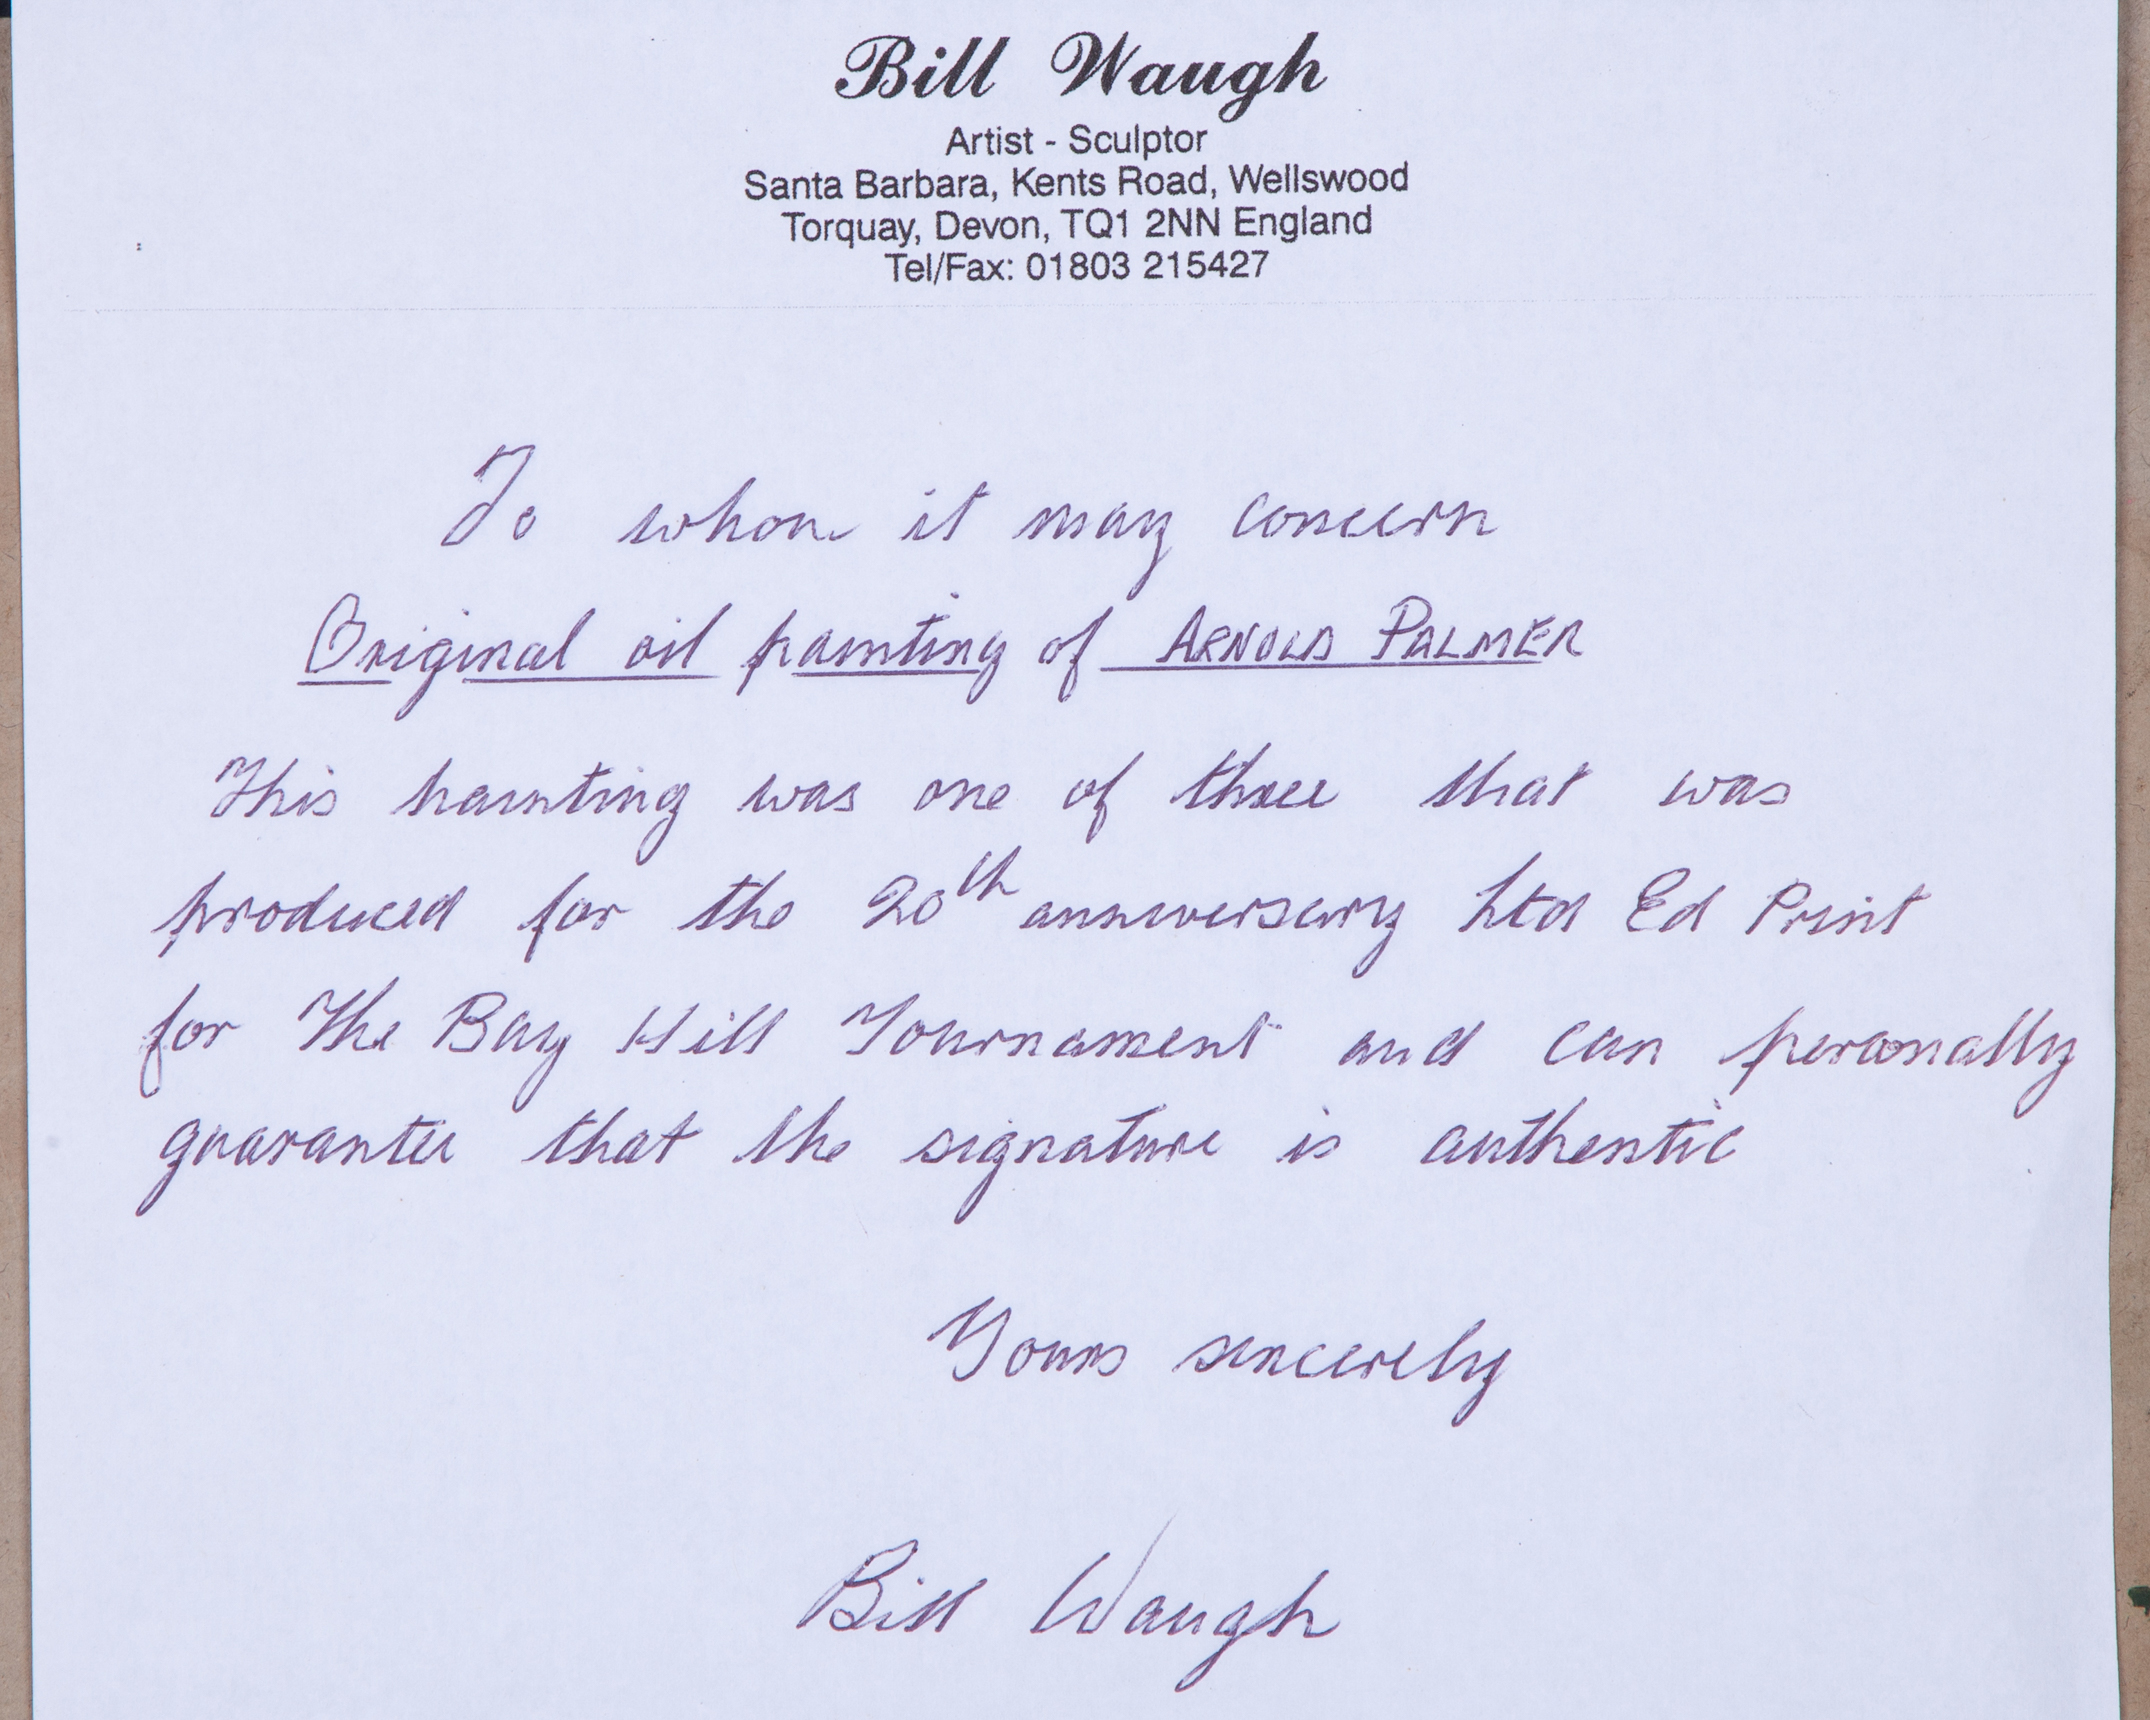 Bill Waugh
Artist - Sculptor
Santa Barbara, Kents Road, Wellswood
Torquay, Devon, TQ1 2NN England
Tel/Fax: 01803 215427
To whom it may concern
Original oil painting of ARNOLD PALMER
This painting was one of three that was
produced for the 20th anniversary Ltd Ed Print
for The Bay Hill Tournament and can personally
guarantee that the signature is authentic
Yours sincerely
Bill Waugh